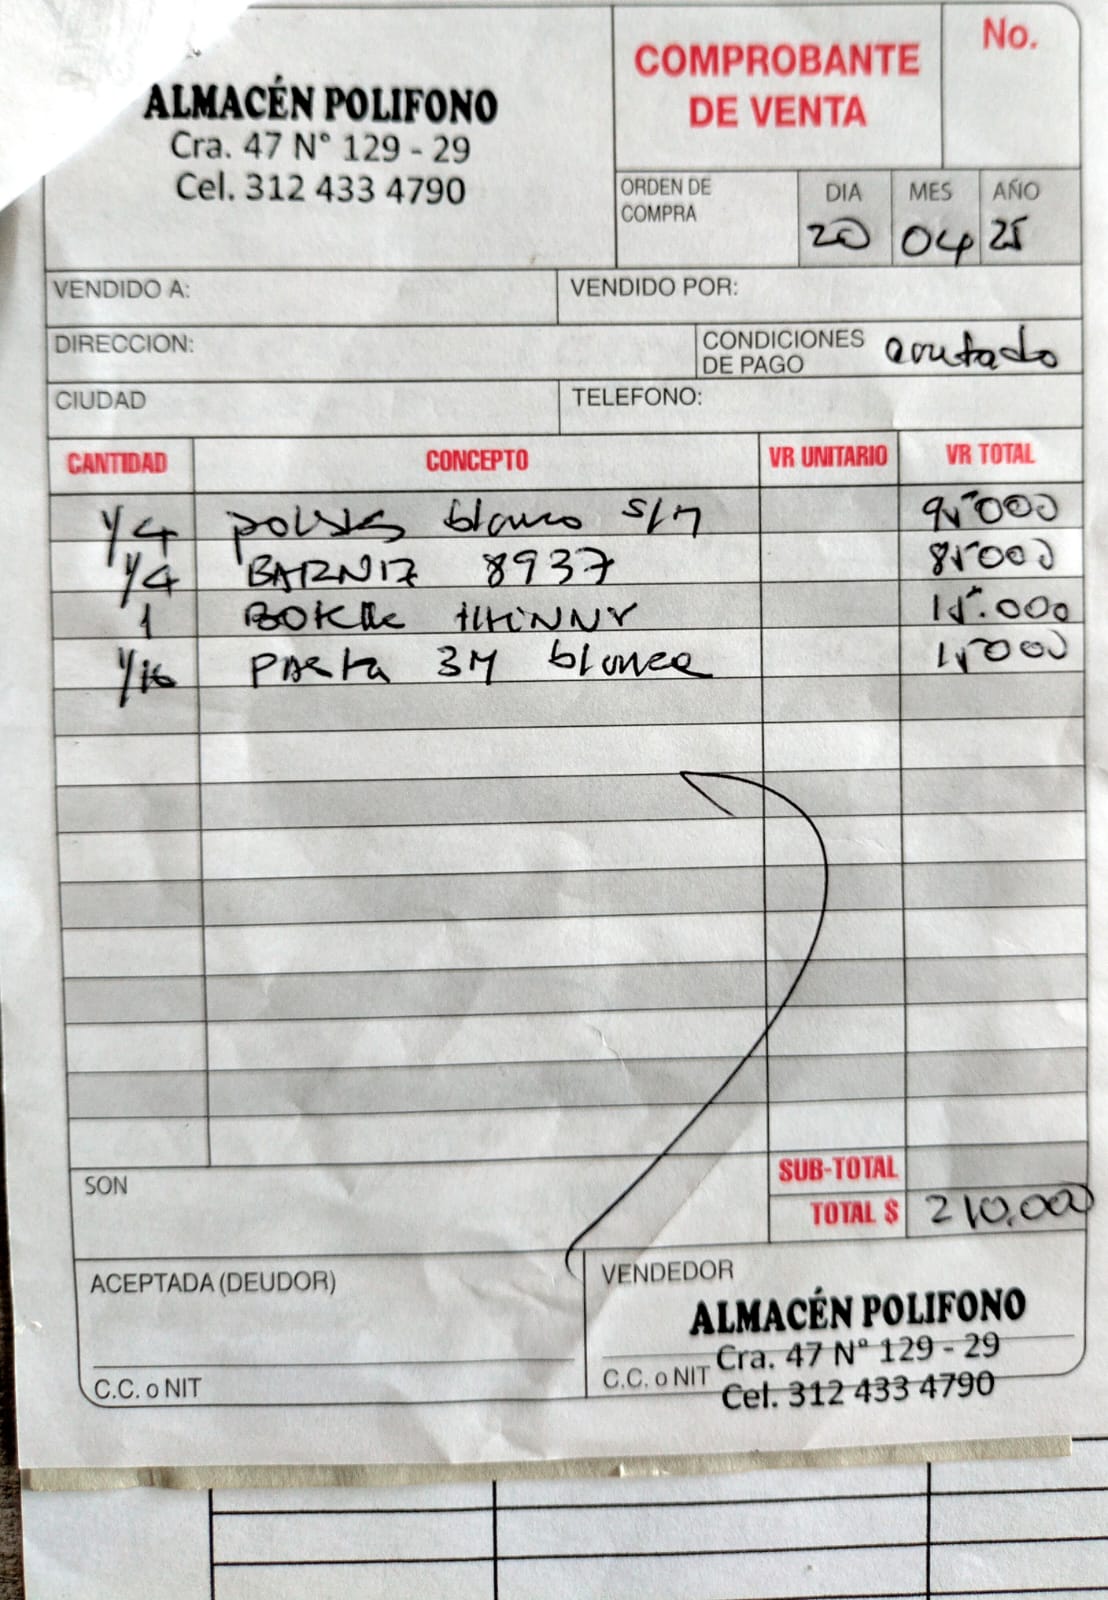 ALMACÉN POLIFONO
Cra. 47 N° 129 - 29
Cel. 312 433 4790
COMPROBANTE
DE VENTA
No.
ORDEN DE
COMPRA
DIA MES AÑO
20 04 25
VENDIDO A:
VENDIDO POR:
DIRECCION:
CONDICIONES
DE PAGO
CIUDAD
TELEFONO:
CANTIDAD CONCEPTO VR UNITARIO VR TOTAL
1/4 blanco S/M 95000
1/4 BARNIZ 8937 85000
1 THINNY 15.000
1/16 PASta 3M blanca 15000
SUB-TOTAL
SON
TOTAL $ 210.000
ACEPTADA (DEUDOR)
C.C. o NIT
VENDEDOR
ALMACÉN POLIFONO
Cra. 47 N° 129 - 29
C.C. o NIT
Cel. 312 433 4790